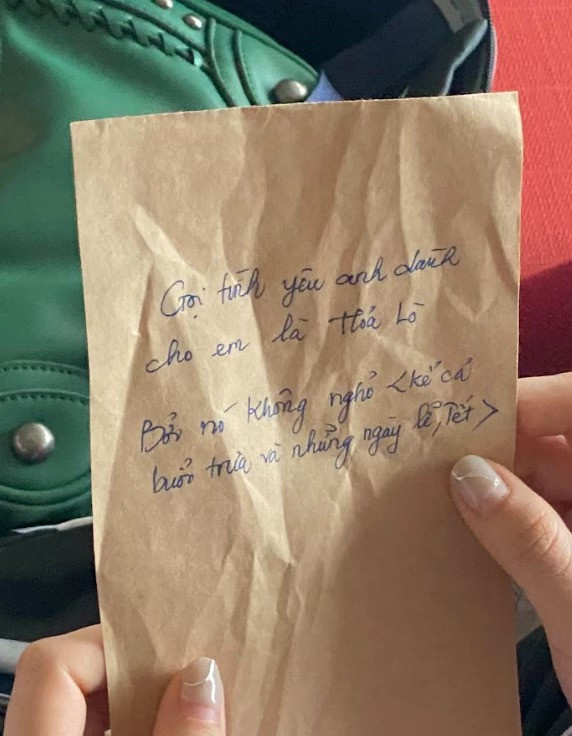 Gọi tình yêu anh dành
cho em là Hỏa Lò
Bởi nó không nghỉ <kể cả
buổi trưa và những ngày lễ, Tết>